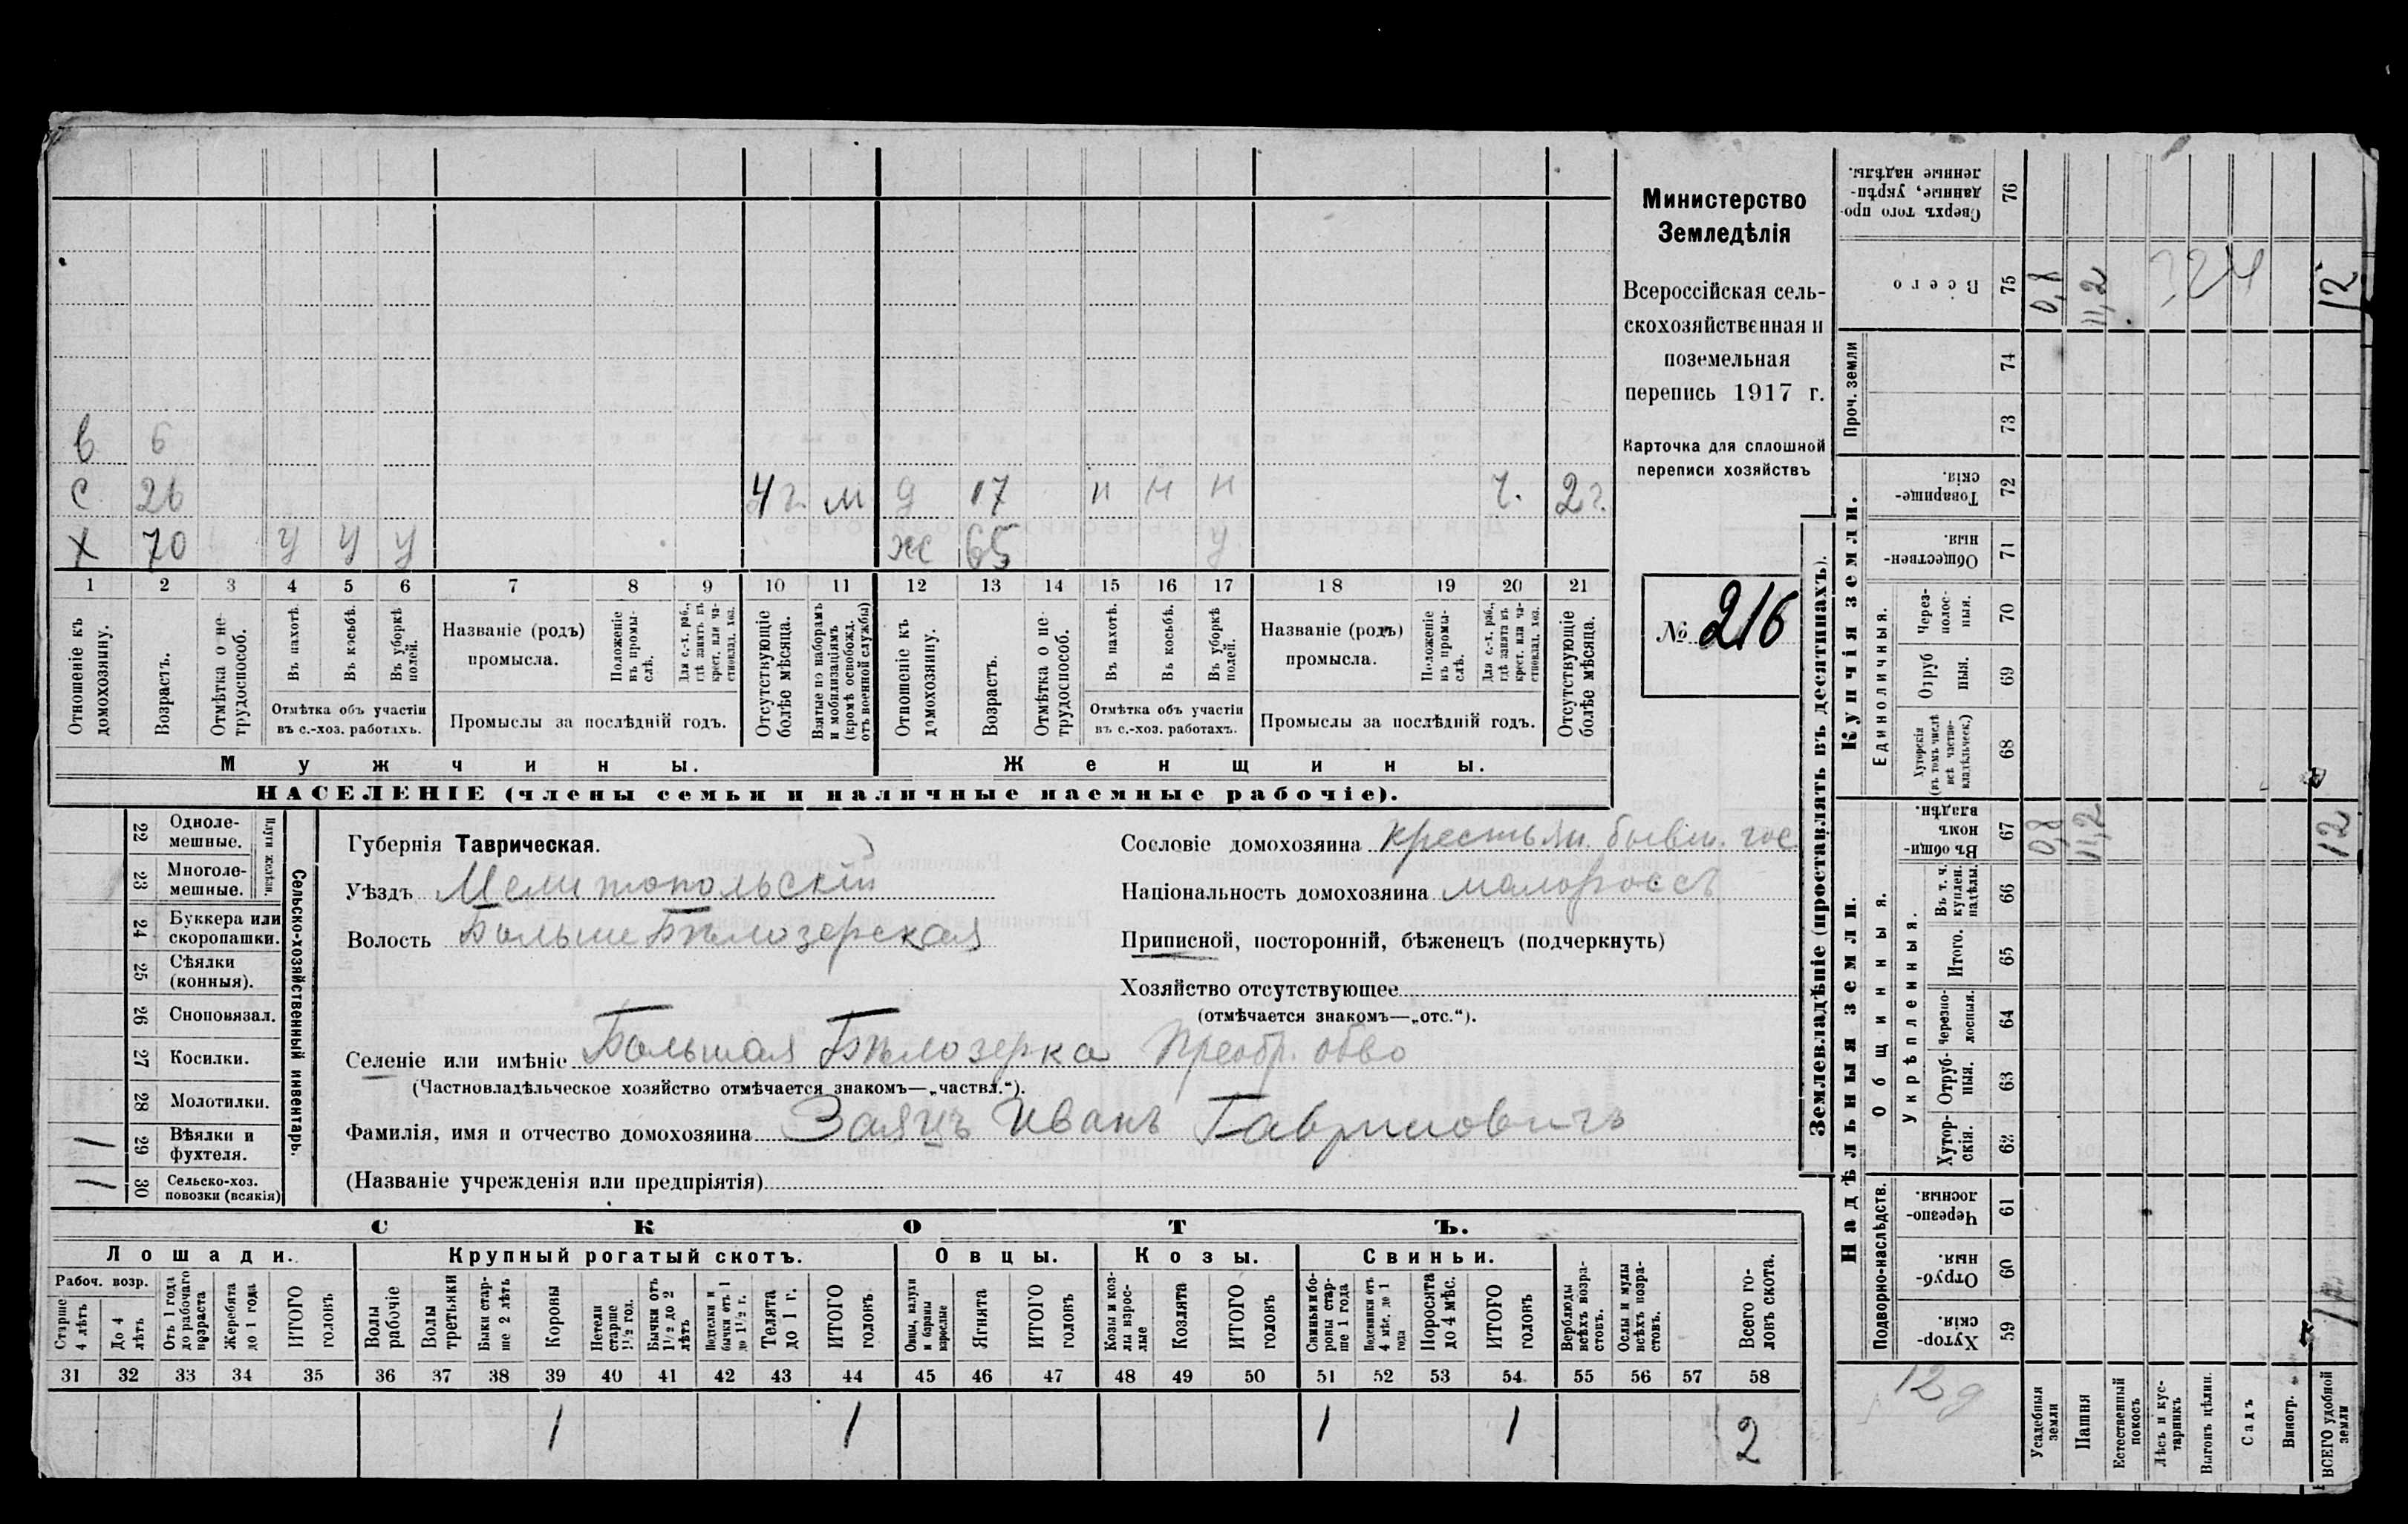 в 6
с 26 4 г. м д 17 н н н ч. 2 г.
х 70 у у у ж 65 у
1 2 3 4 5 6 7 8 9 10 11 12 13 14 15 16 17 18 19 20 21
Отношеніе къ домохозяину.
Возрастъ.
Отмѣтка о нетрудоспособ.
Въ пахотѣ.
Въ косьбѣ.
Въ уборкѣ полей.
Отмѣтка объ участіи
въ с.-хоз. работахъ.
Названіе (родъ)
промысла.
Положеніе въ промыслѣ.
Для с.-х. раб., гдѣ занятъ въ крест. или частновлад. хоз.
Промыслы за послѣдній годъ.
Отсутствующіе болѣе мѣсяца.
Взятые по наборамъ и мобилизаціямъ (кромѣ освобожд. отъ военной службы)
Отношеніе къ домохозяину.
Возрастъ.
Отмѣтка о нетрудоспособ.
Въ пахотѣ.
Въ косьбѣ.
Въ уборкѣ полей.
Отмѣтка объ участіи
въ с.-хоз. работахъ.
Названіе (родъ)
промысла.
Положеніе въ промыслѣ.
Для с.-х. раб., гдѣ занята въ крест. или частновлад. хоз.
Промыслы за послѣдній годъ.
Отсутствующіе болѣе мѣсяца.
Мужчины. Женщины.
НАСЕЛЕНІЕ (члены семьи и наличные наемные рабочіе).
Министерство
Земледѣлія
Всероссійская сель-
скохозяйственная и
поземельная
перепись 1917 г.
Карточка для сплошной
переписи хозяйствъ
№ 216
Сельско-хозяйственный инвентарь.
Плуги желѣзн.
22 Однолемешные.
23 Многолемешные.
24 Буккера или скоропашки.
25 Сѣялки (конныя).
26 Сноповязал.
27 Косилки.
28 Молотилки.
1 29 Вѣялки и фухтеля.
1 30 Сельско-хоз. повозки (всякія)
Губернія Таврическая.
Уѣздъ Мелитопольскій
Волость Больше Бѣлозерская
Сословіе домохозяина крестьян. бывш. гос
Національность домохозяина малороссъ
Приписной, посторонній, бѣженецъ (подчеркнуть)
Хозяйство отсутствующее
(отмѣчается знакомъ—„отс.“).
Селеніе или имѣніе Большая Бѣлозерка Преобр. обво
(Частновладѣльческое хозяйство отмѣчается знакомъ—„частвл.“).
Фамилія, имя и отчество домохозяина Заяцъ Иванъ Гавриловичъ
(Названіе учрежденія или предпріятія)
СКОТЪ.
Лошади. Крупный рогатый скотъ. Овцы. Козы. Свиньи.
Рабоч. возр.
Старше 4 лѣтъ
До 4 лѣтъ
Отъ 1 года до рабочаго возраста
Жеребята до 1 года
ИТОГО головъ
Волы рабочіе
Волы третьяки
Быки старше 2 лѣтъ
Коровы
Нетели старше 1½ год.
Бычки отъ 1½ до 2 лѣтъ
Подтелки и бычки отъ 1 до 1½ г.
Телята до 1 г.
ИТОГО головъ.
Овцы, валухи и бараны взрослые
Ягнята
ИТОГО головъ
Козы и козлы взрослые
Козлята
ИТОГО головъ
Свиньи и боровы старше 1 года
Подсвинки отъ 4 мѣс. до 1 года
Поросята до 4 мѣс.
ИТОГО головъ
Верблюды всѣхъ возрастовъ.
Ослы и мулы всѣхъ возрастовъ.
Всего головъ скота.
31 32 33 34 35 36 37 38 39 40 41 42 43 44 45 46 47 48 49 50 51 52 53 54 55 56 57 58
1 1 1 1 2
Землевладѣніе (проставлять въ десятинахъ).
Сверхъ того проданные, укрѣпленные надѣлы. 76
Всего 75 0,8 11,2 324 12
Проч. земли
74
73
Купчія земли.
Товарищескія. 72
Общественныя. 71
Единоличныя.
Черезполосныя. 70
Отрубныя. 69
Хуторскія (въ томъ числѣ всѣ частновладѣльческ.) 68
Надѣльныя земли.
Общинныя.
Въ общинномъ владѣн. 67 0,8 11,2 12
Укрѣпленныя.
Въ т. ч. куплен. надѣлы. 66
Итого. 65
Черезполосныя. 64
Отрубныя. 63
Хуторскія. 62
Подворно-наслѣдств.
Черезполосныя. 61
Отрубныя. 60
Хуторскія. 59
12 д
Усадебныя земли
Пашня
Естественный покосъ
Лѣсъ и кустарникъ
Выгонъ цѣлин.
Садъ
Виногр.
ВСЕГО удобной земли